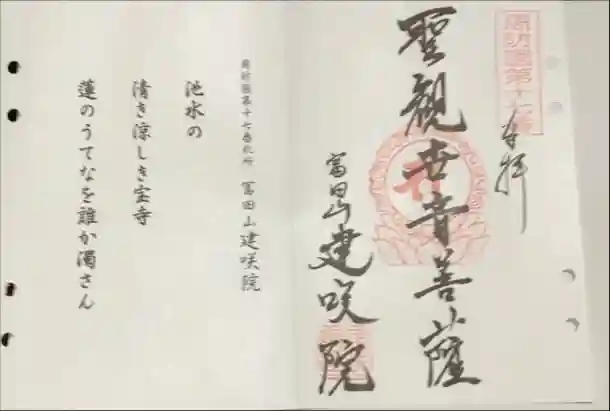 周防国第十七番
奉拝
聖観世音菩薩
冨田山建咲院
周防国第十七番札所 冨田山建咲院
池水の
清き涼しき宝寺
蓮のうてなを誰か濁さん